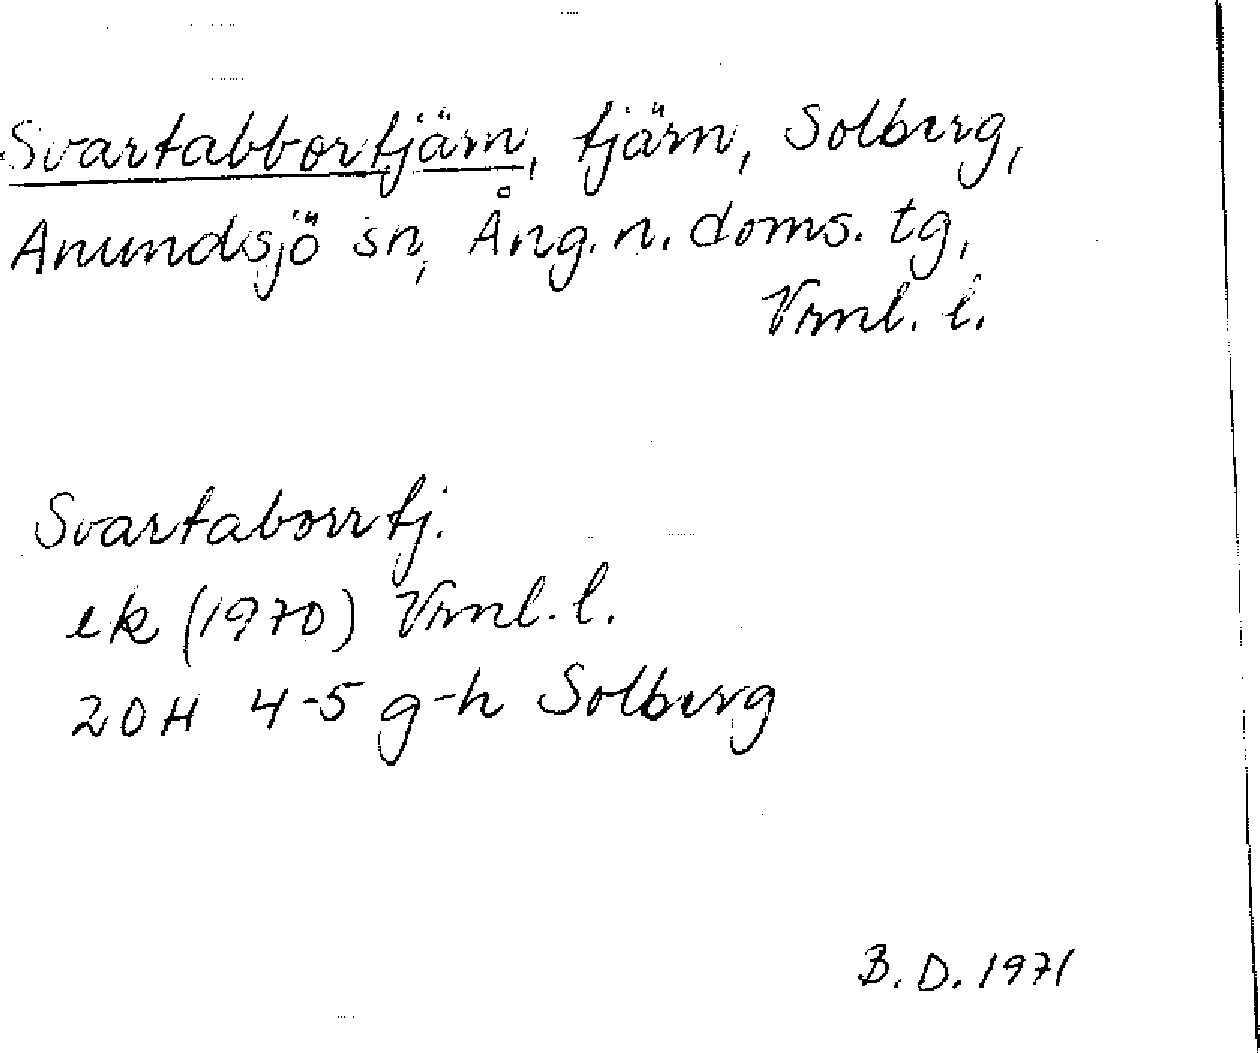 Svartabbortjärn, tjärn, Solberg,
Anundsjö sn, Ång. n. doms. tg,
Vrnl. l.
Svartaborrtj.
ek (1970) Vrnl. l.
20H 4-5 g-h Solberg
B. D. 1971